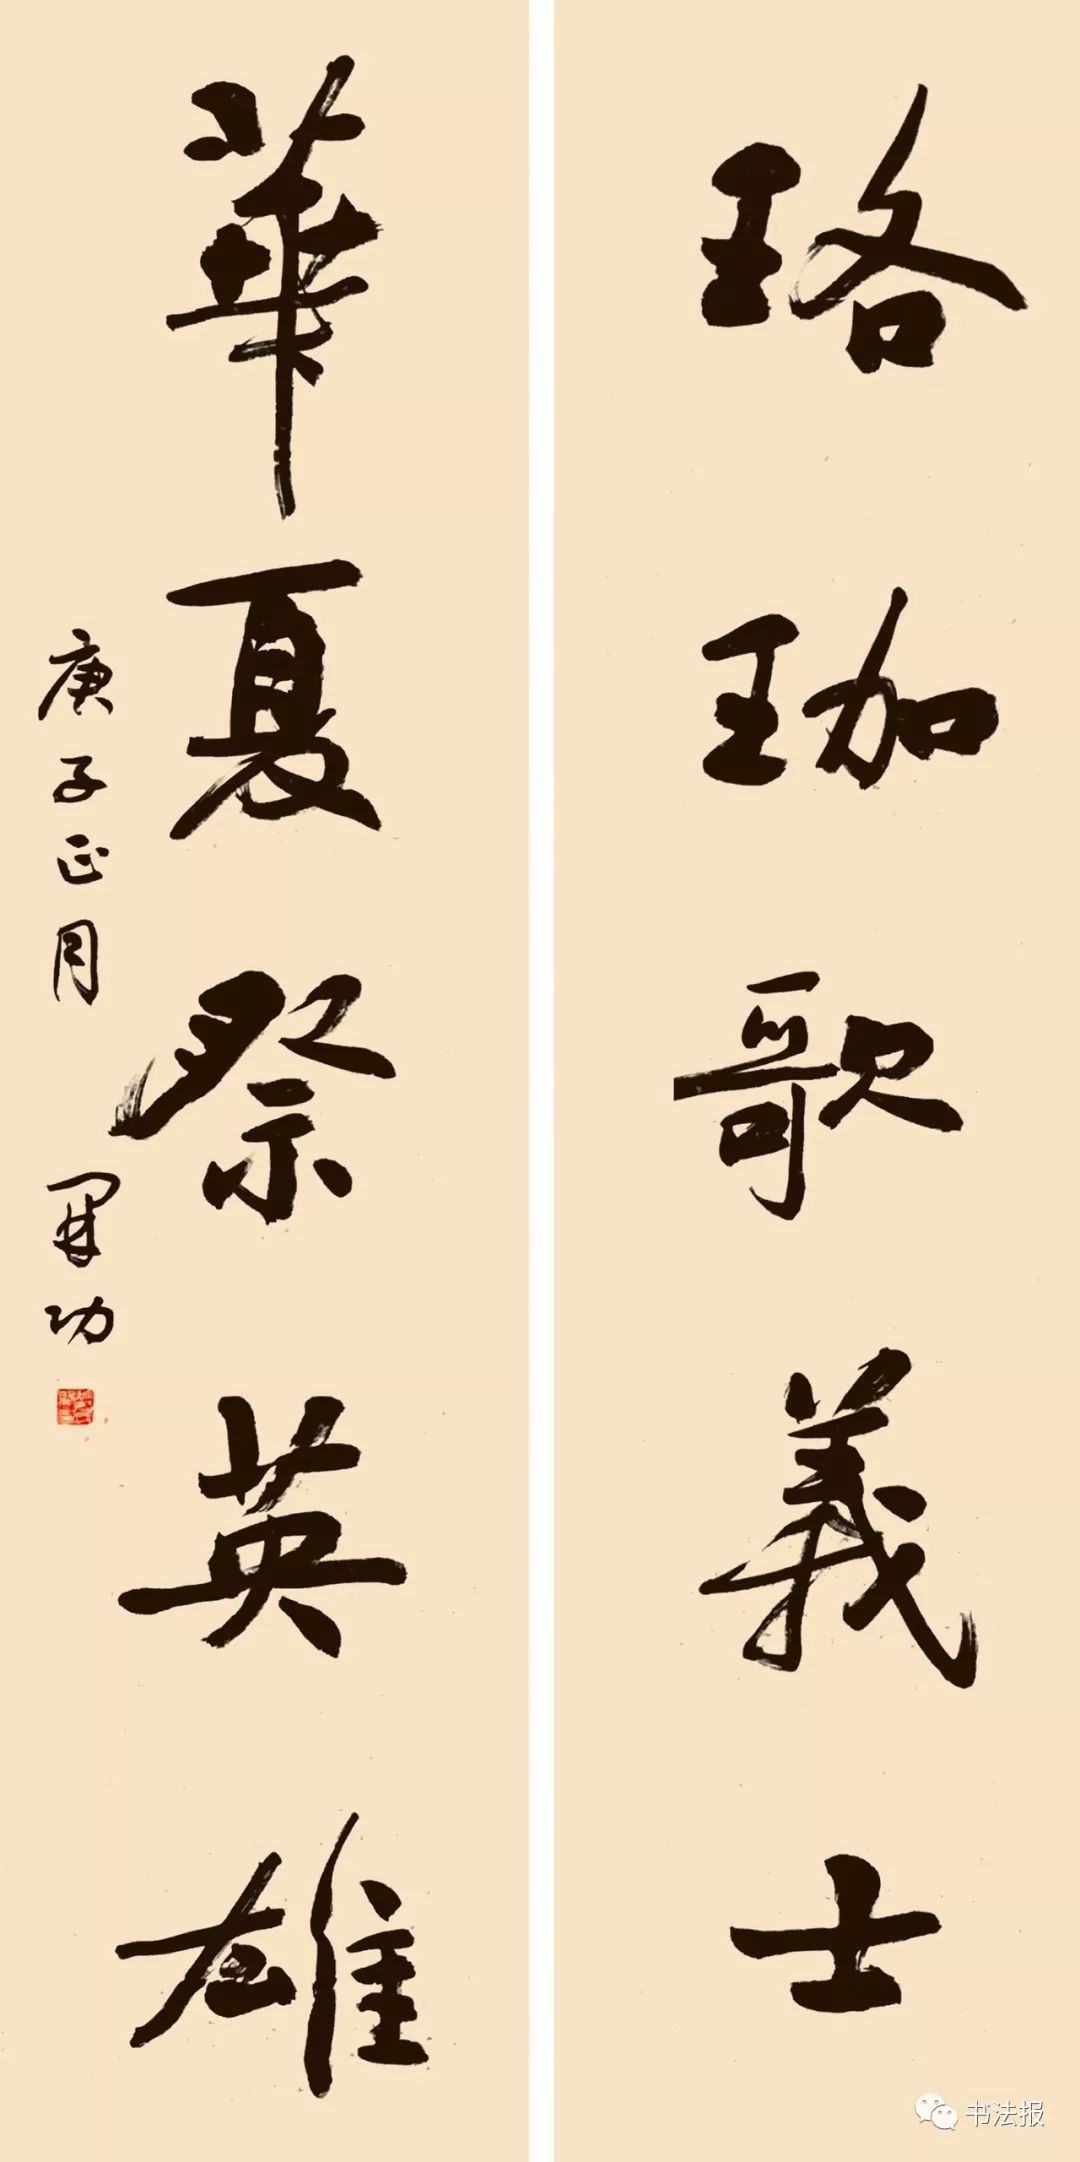 珞珈歌義士
華夏祭英雄
庚子正月 開功
书法报